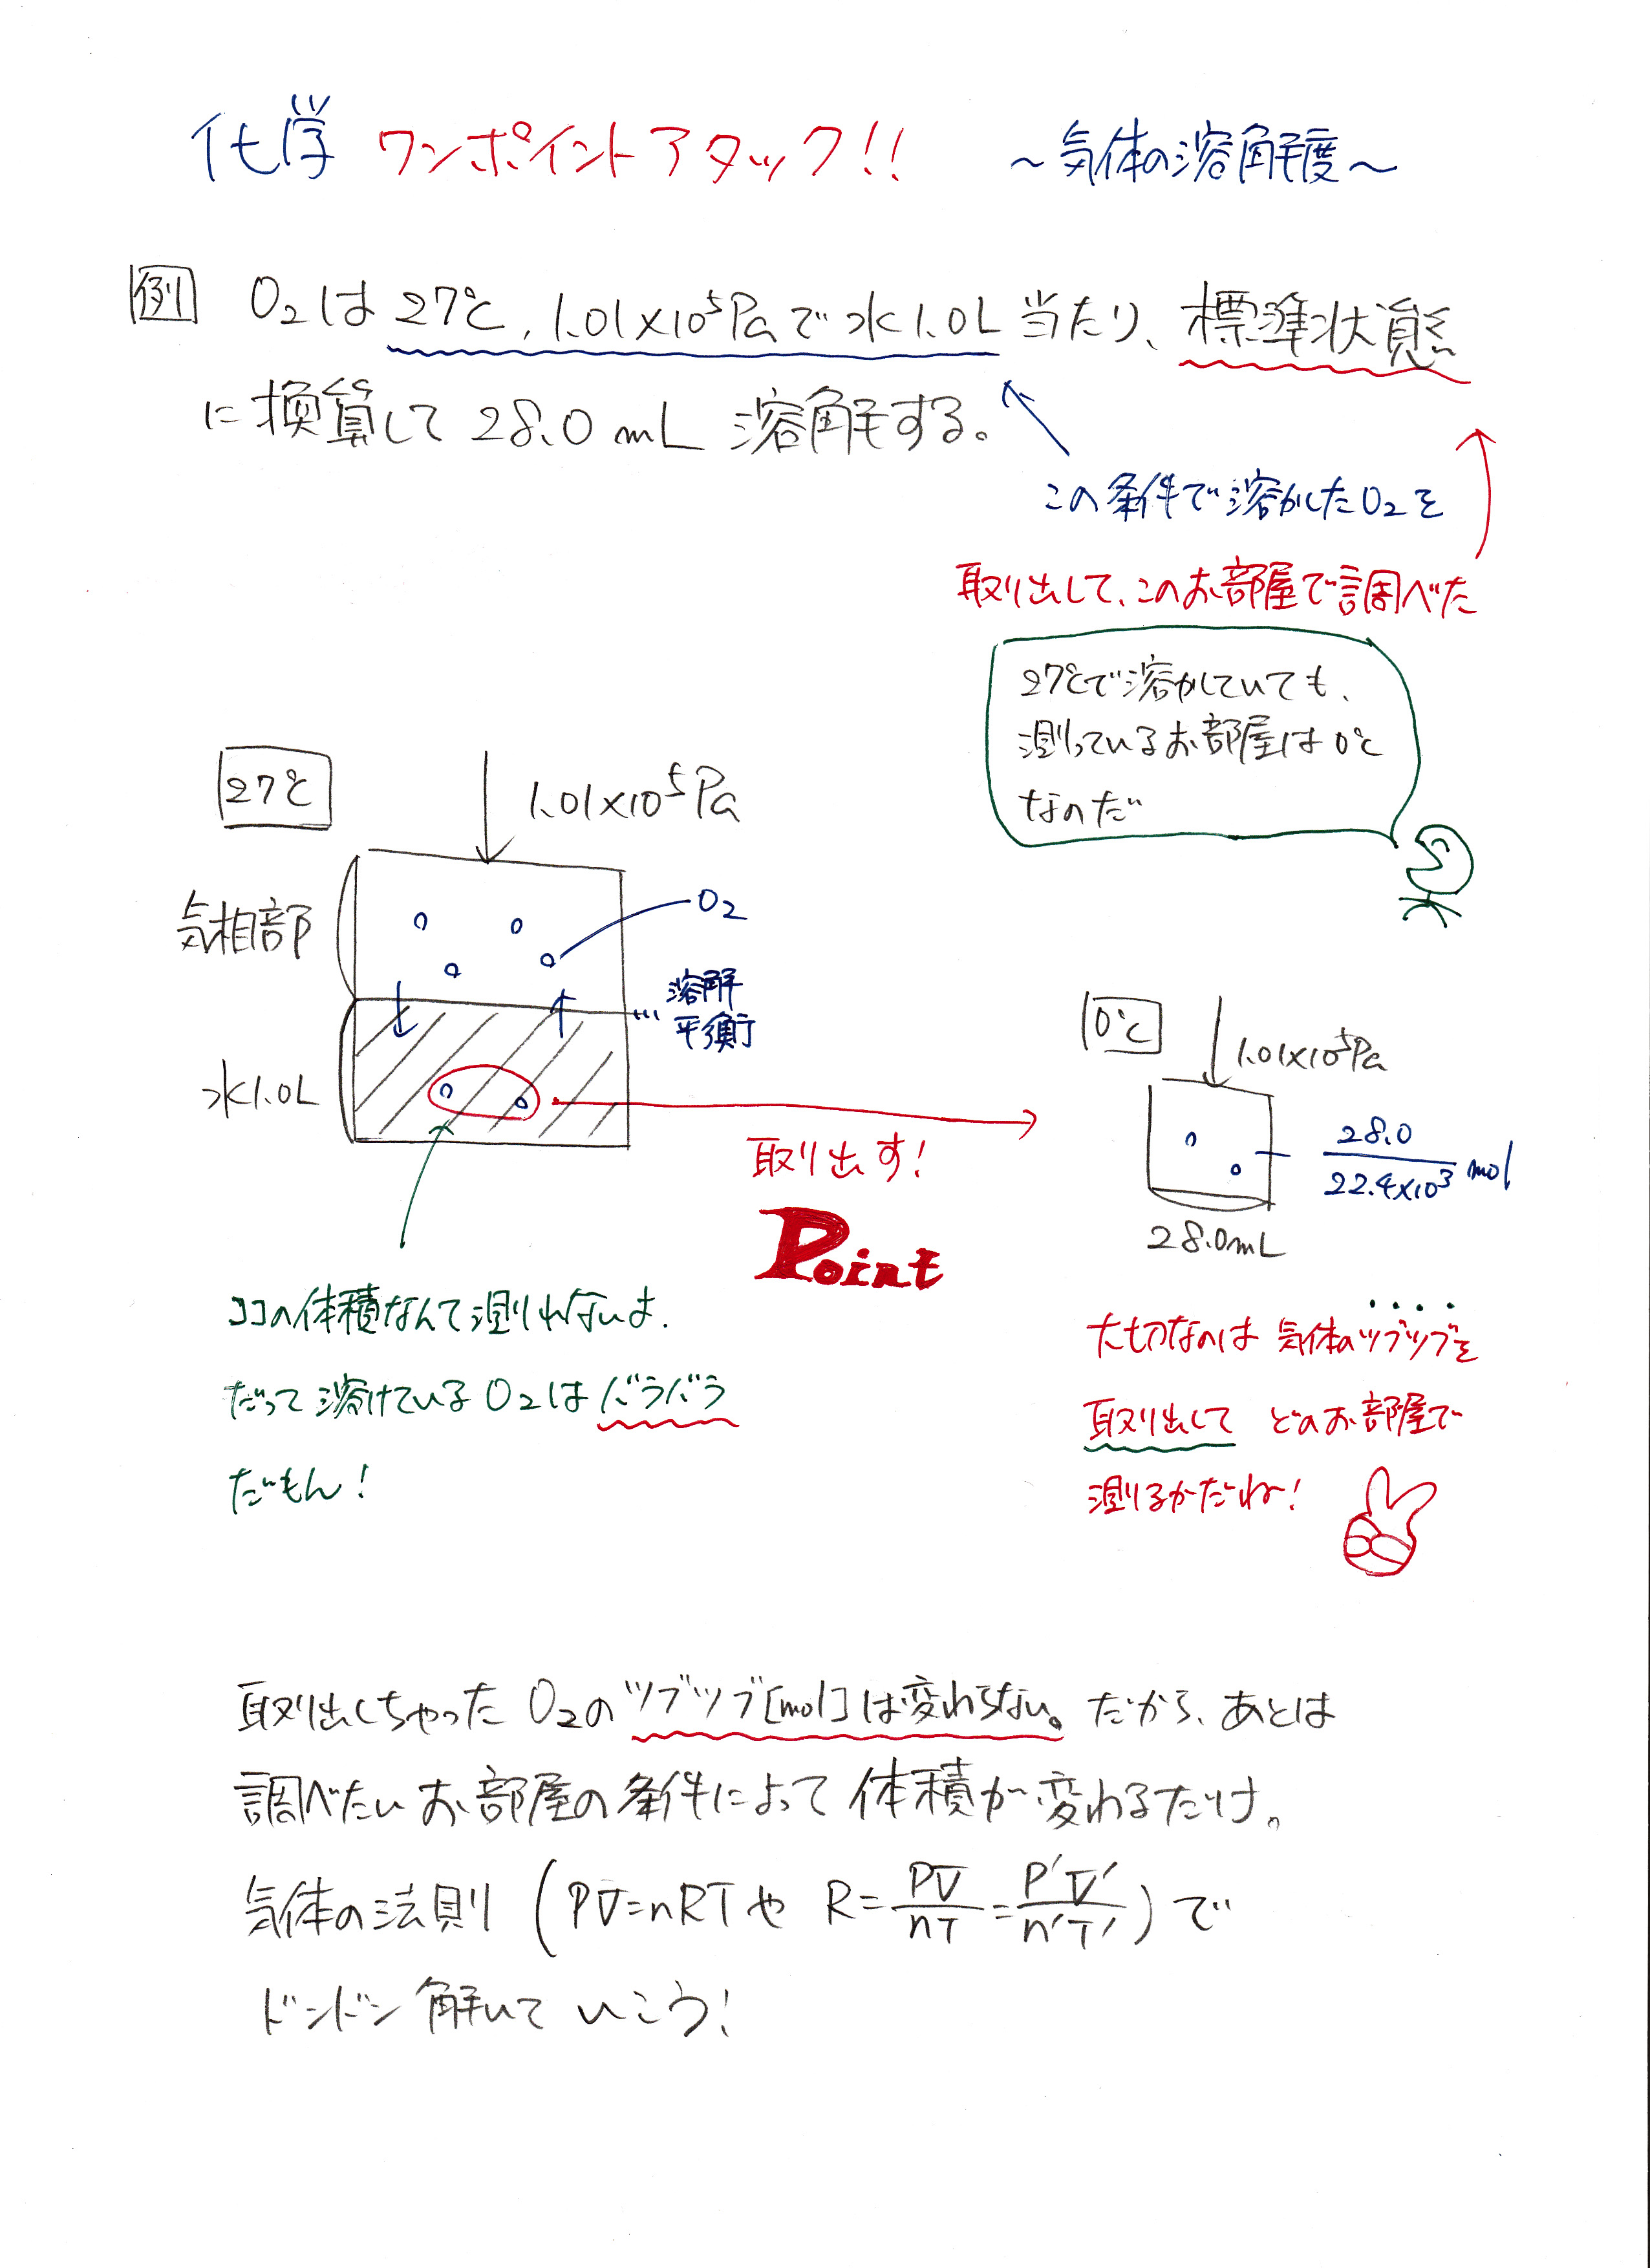 化学 ワンポイントアタック!! ～気体の溶解度～
例 O₂は27℃, 1.01×10⁵Paで水1.0L当たり、標準状態
に換算して28.0mL溶解する。
この条件で溶かしたO₂を
取り出して、このお部屋で調べた
27℃で溶かしていても、
測っているお部屋は0℃
なのだ
27℃
1.01×10⁵Pa
気相部
O₂
溶解
…平衡
水1.0L
取り出す!
Point
0℃
1.01×10⁵Pa
28.0/22.4×10³ mol
28.0mL
ココの体積なんて測れないよ.
だって溶けているO₂はバラバラ
だもん!
大切なのは気体のツブツブを
取り出して どのお部屋で
測るかだね!
取り出しちゃったO₂のツブツブ[mol]は変わらない。だから、あとは
調べたいお部屋の条件によって体積が変わるだけ。
気体の法則 (PV=nRTや R=PV/nT=P'V'/n'T')で
ドンドン解いていこう!